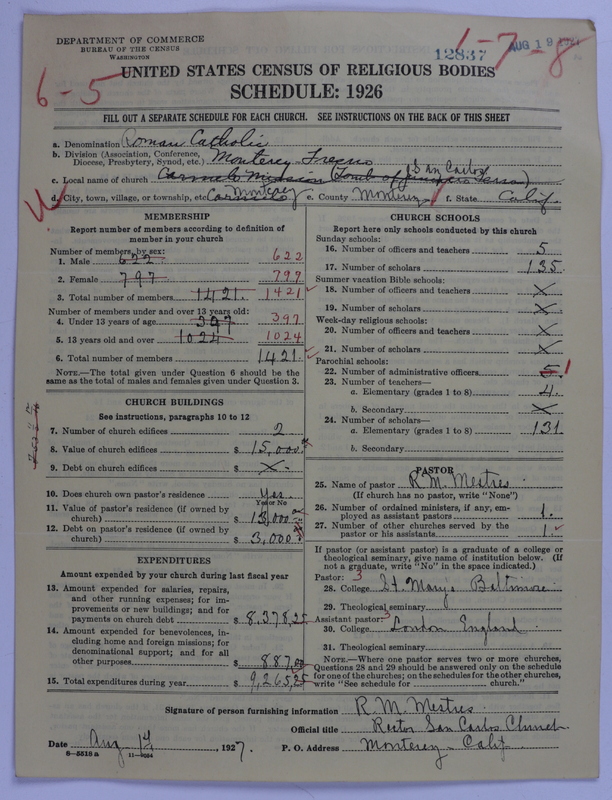 DEPARTMENT OF COMMERCE
BUREAU OF THE CENSUS
WASHINGTON
12837
AUG 19 1927
1-7-8
6-5
UNITED STATES CENSUS OF RELIGIOUS BODIES
SCHEDULE: 1926
FILL OUT A SEPARATE SCHEDULE FOR EACH CHURCH. SEE INSTRUCTIONS ON THE BACK OF THIS SHEET
a. Denomination Roman Catholic
b. Division (Association, Conference, Diocese, Presbytery, Synod, etc.) Monterey Fresno
San Carlos
c. Local name of church Carmelo Mission (Tomb of Junipero Serra)
d. City, town, village, or township, etc. Carmelo Monterey e. County Monterey f. State Calif.
MEMBERSHIP
Report number of members according to definition of member in your church
Number of members by sex:
1. Male 622 622
2. Female 797 799
3. Total number of members 1421. 1421
Number of members under and over 13 years old:
4. Under 13 years of age 397 397
5. 13 years old and over 1024 1024
6. Total number of members 1421.
NOTE.—The total given under Question 6 should be the same as the total of males and females given under Question 3.
CHURCH BUILDINGS
See instructions, paragraphs 10 to 12
7. Number of church edifices 2
8. Value of church edifices $ 15,000.
9. Debt on church edifices $ X
10. Does church own pastor's residence Yes.
Yes or No
11. Value of pastor's residence (if owned by church) $ 13,000
12. Debt on pastor's residence (if owned by church) $ 3,000
EXPENDITURES
Amount expended by your church during last fiscal year
13. Amount expended for salaries, repairs, and other running expenses; for improvements or new buildings; and for payments on church debt $ 8,378,25
14. Amount expended for benevolences, including home and foreign missions; for denominational support; and for all other purposes $ 887,00
15. Total expenditures during year $ 9,265,25
CHURCH SCHOOLS
Report here only schools conducted by this church
Sunday schools:
16. Number of officers and teachers 5
17. Number of scholars 135
Summer vacation Bible schools:
18. Number of officers and teachers X
19. Number of scholars X
Week-day religious schools:
20. Number of officers and teachers X
21. Number of scholars X
Parochial schools:
22. Number of administrative officers 5 1
23. Number of teachers—
a. Elementary (grades 1 to 8) 4.
b. Secondary X
24. Number of scholars—
a. Elementary (grades 1 to 8) 131
b. Secondary
PASTOR
25. Name of pastor R. M. Mestres
(If church has no pastor, write "None")
26. Number of ordained ministers, if any, employed as assistant pastors 1.
27. Number of other churches served by the pastor or his assistants 1.
If pastor (or assistant pastor) is a graduate of a college or theological seminary, give name of institution below. (If not a graduate, write "No" in the space indicated.)
Pastor: 3
28. College St. Mary's Baltimore
29. Theological seminary
Assistant pastor: 3
30. College London England
31. Theological seminary
NOTE.—Where one pastor serves two or more churches, Questions 28 and 29 should be answered only on the schedule for one of the churches; on the schedules for the other churches, write "See schedule for church."
Signature of person furnishing information R. M. Mestres
Official title Rector San Carlos Church
Date Aug 14, 1927. P. O. Address Monterey - Calif.
8-5518 a